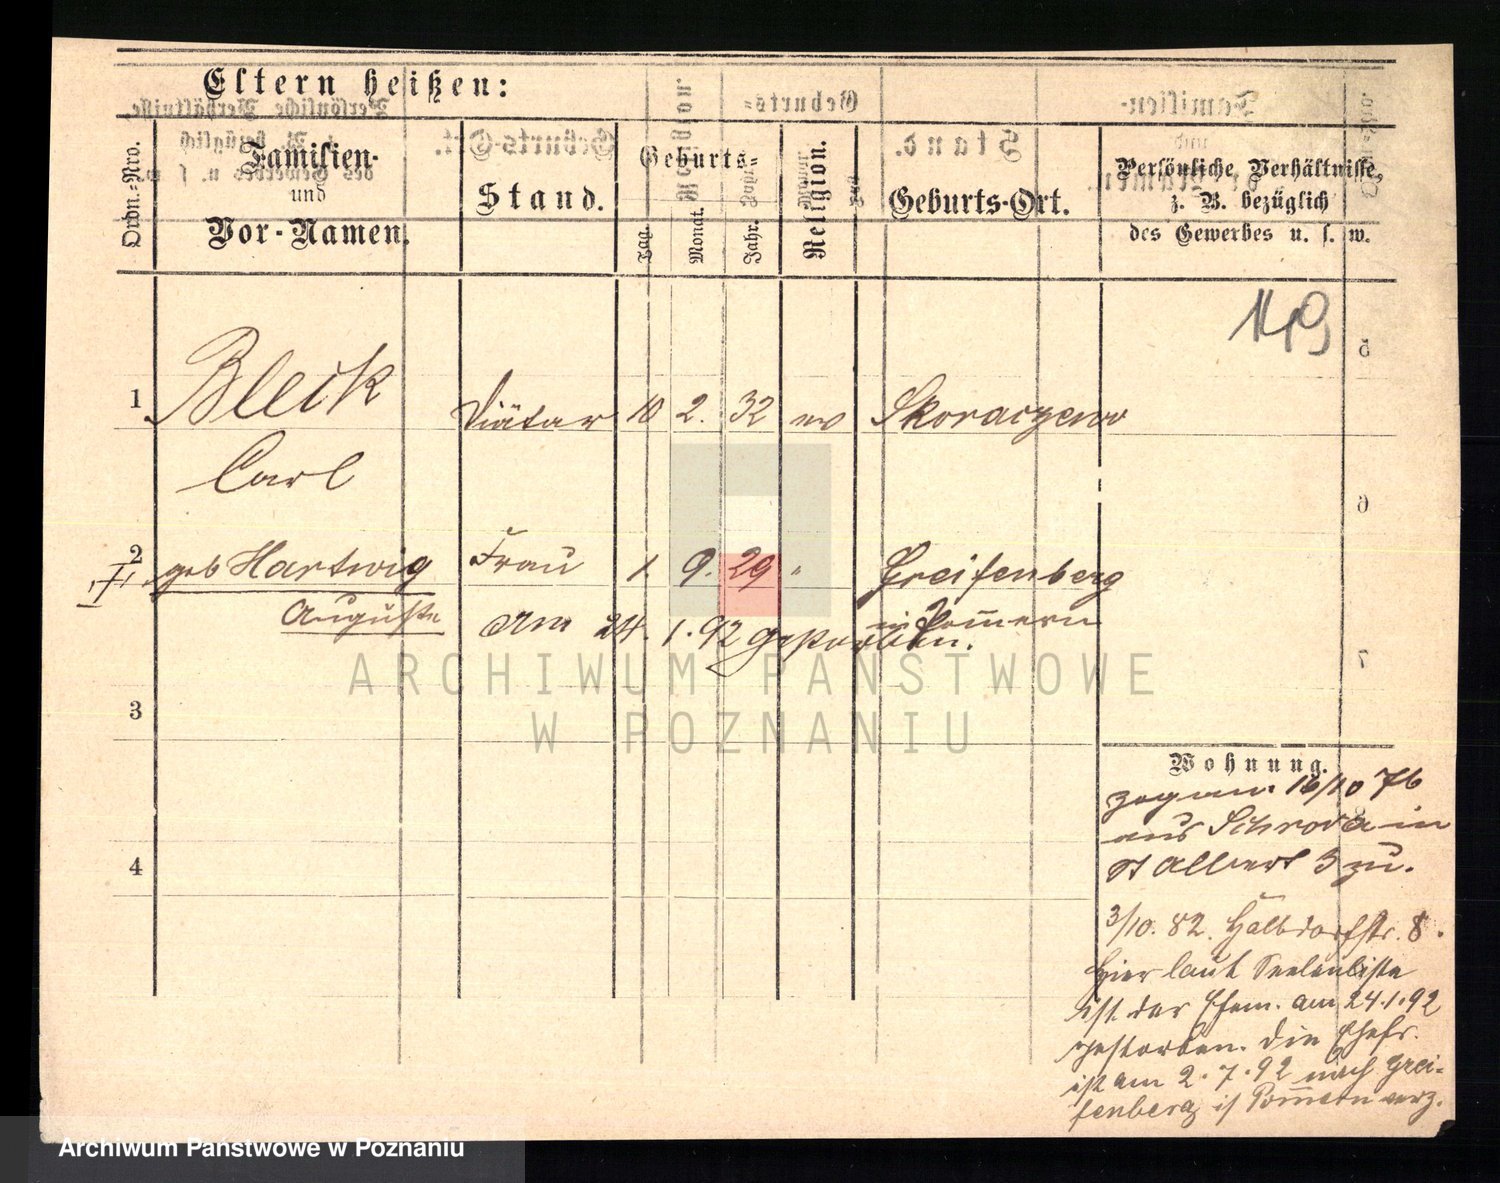 Eltern heißen:
Ordn.-Nro.
Familien-
und
Vor-Namen.
Stand.
Geburts-
Tag.
Monat.
Jahr.
Religion.
Geburts-Ort.
Persönliche Verhältnisse,
z. B. bezüglich
des Gewerbes u. s. w.
149
1 Bleck Diätar 10 2. 32 ev Skoraczewo
Carl
2 geb Hartwig Frau 1. 9. 29 " Greifenberg
Auguste in Pommern
am 24. 1. 92 gestorben.
3
4
Wohnung.
zog am 16/10 76
aus Schroda in
St Albert 3 zu.
3/10. 82. Halbdorfstr. 8.
Hier laut Seelenliste
ist der Ehem. am 24.1.92
gestorben. Die Ehefr.
ist am 2.7.92 nach Grei-
fenberg i/ Pommern verz.
ARCHIWUM PAŃSTWOWE
W POZNANIU
Archiwum Państwowe w Poznaniu